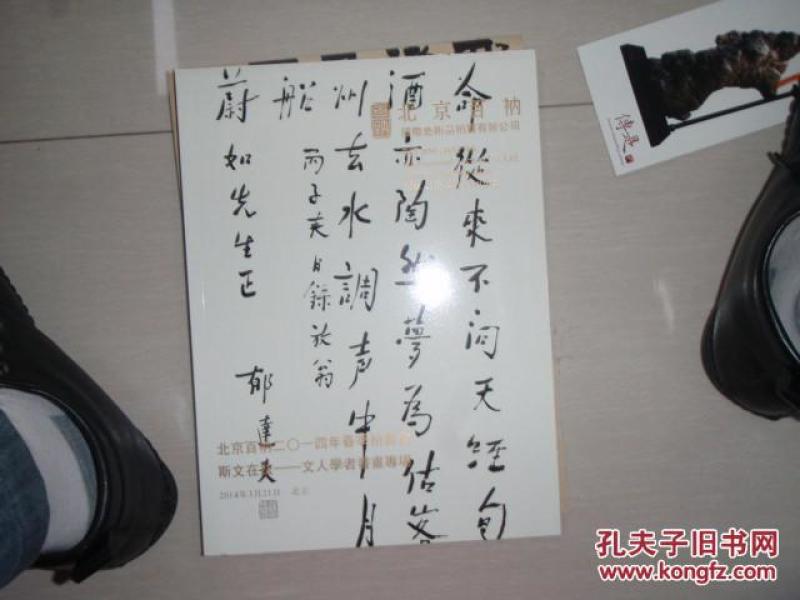 命從來不問天經旬
酒亦陶然夢為估客
州去水調聲中月
船 丙子夏日錄放翁
蔚如先生正 郁達夫
北京百衲
國際藝術品拍賣有限公司
北京百衲二〇一四年春季拍賣會
斯文在兹——文人學者書畫專場
2014年3月21日 北京
傳是
孔夫子旧书网
www.kongfz.com